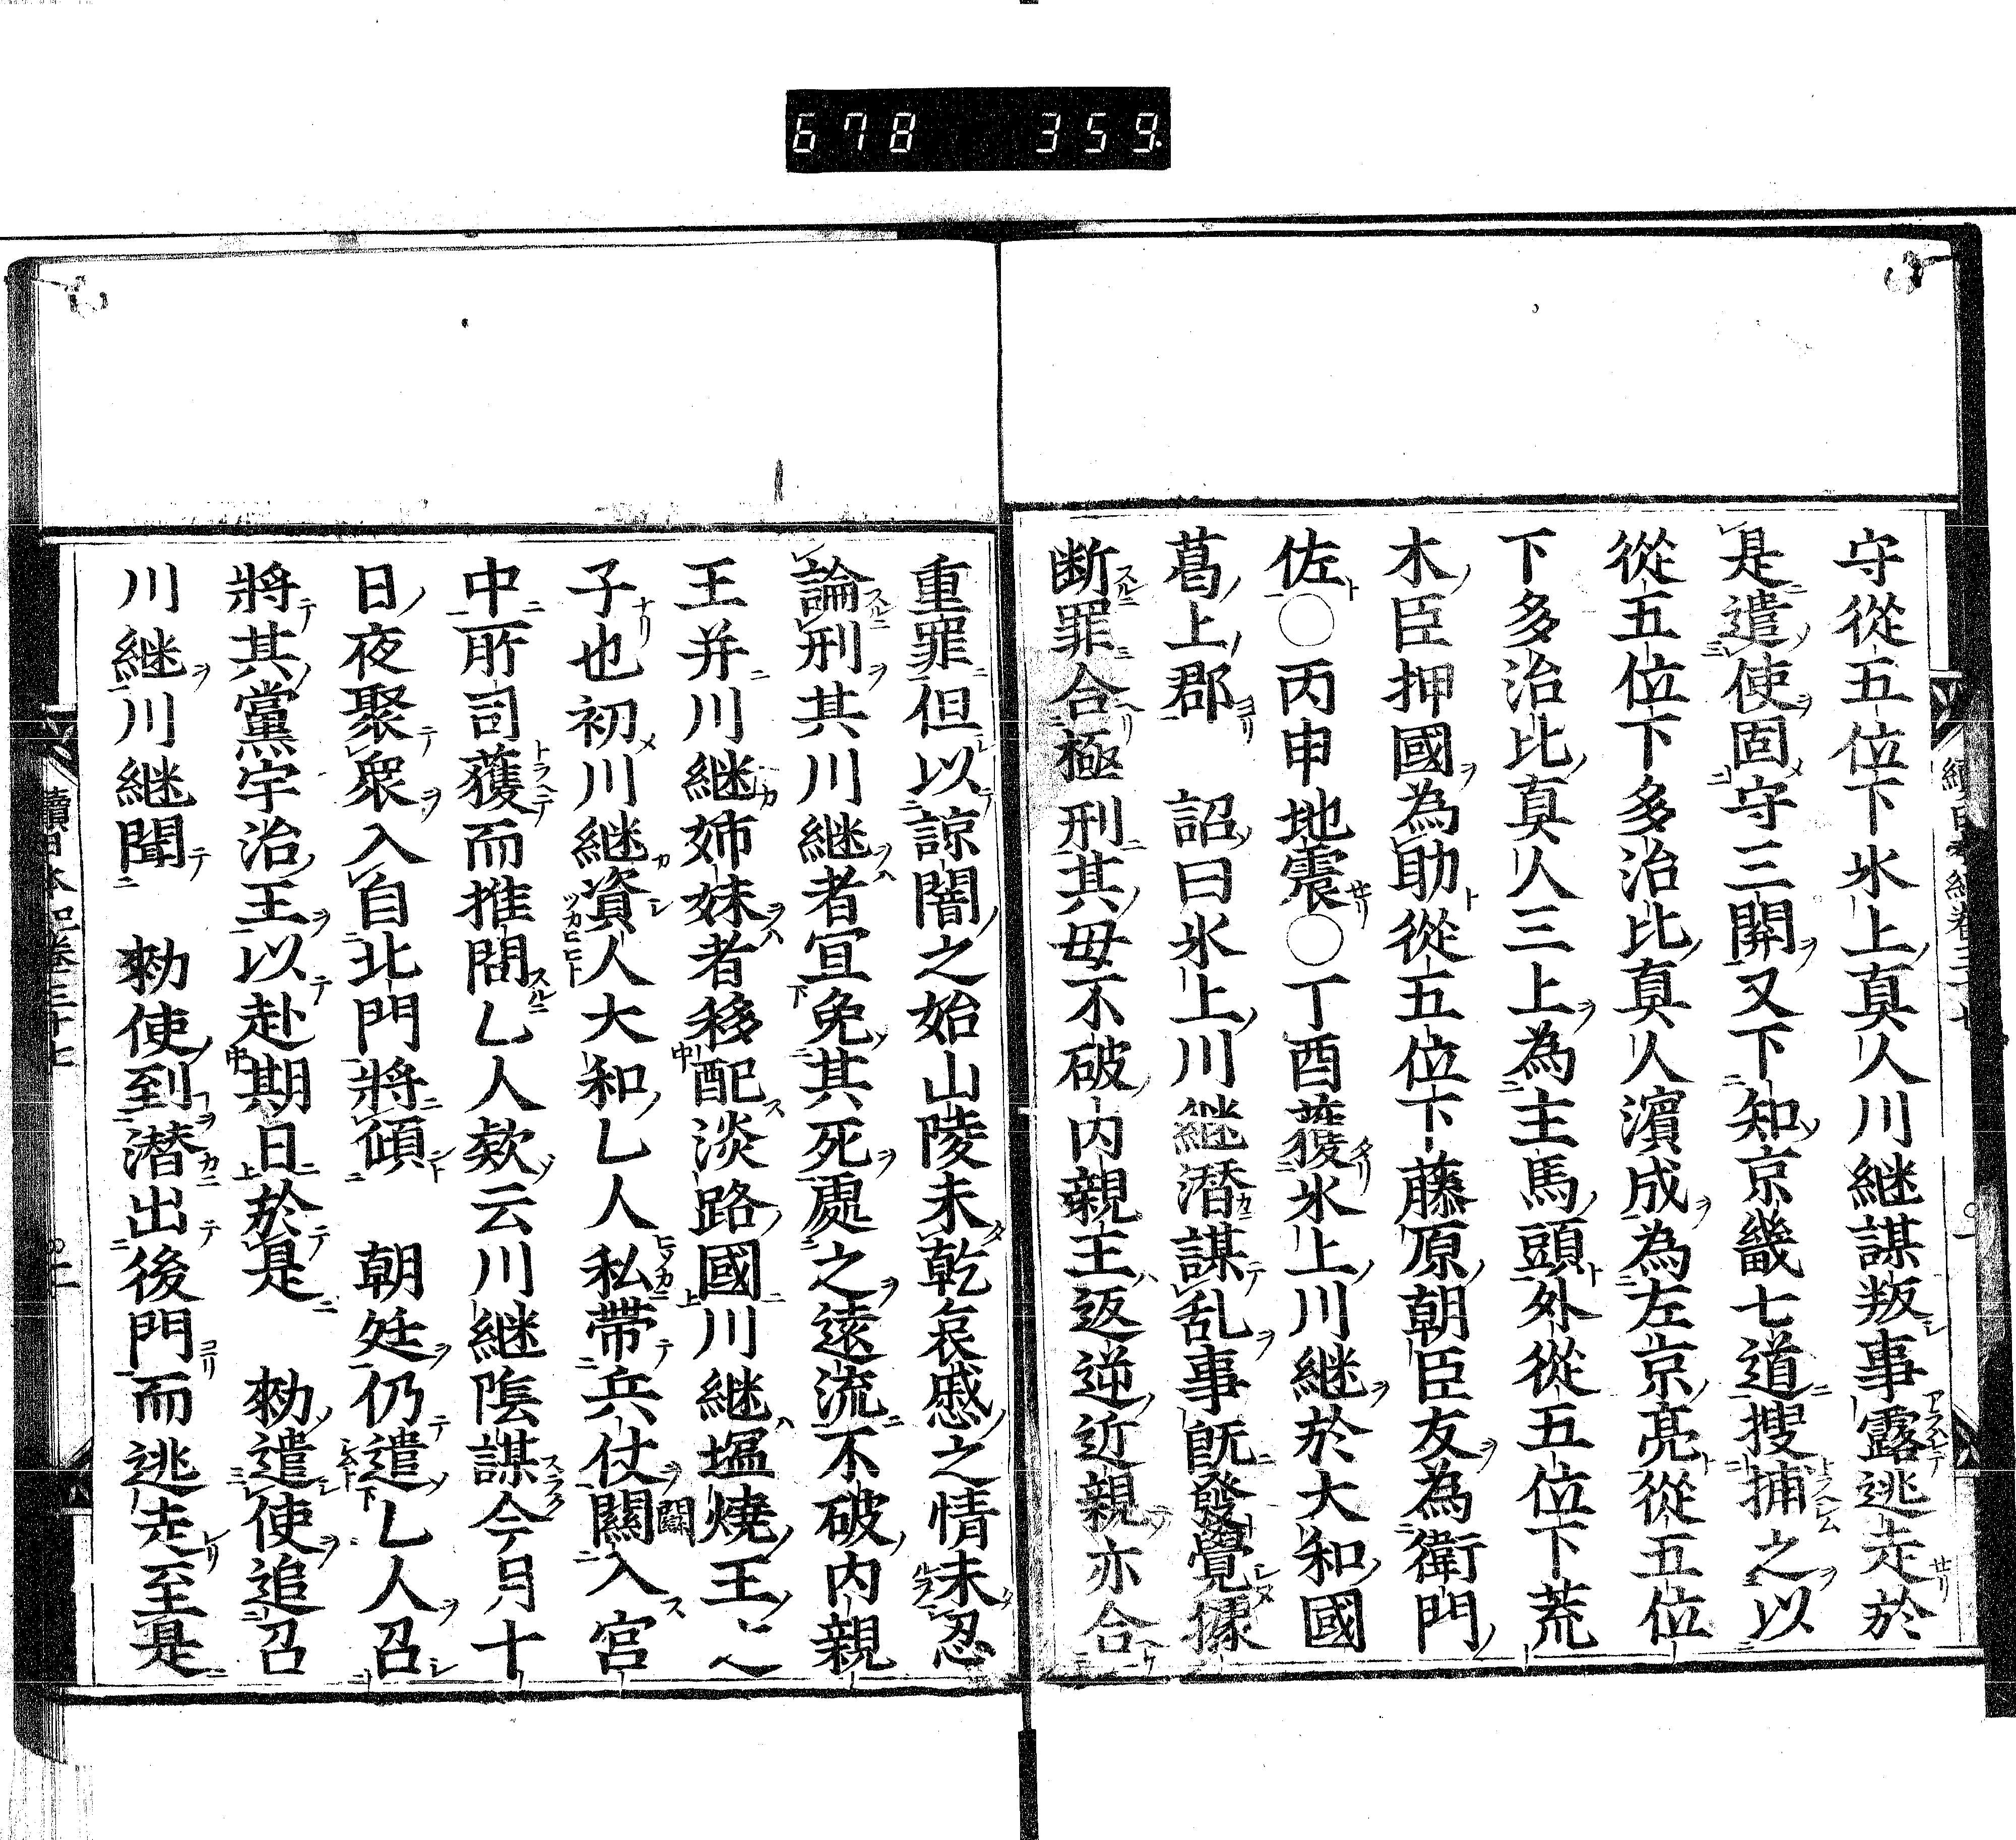 678 359
守從五位下氷上真人川継謀叛事露逃走於
是遣使固守三關又下知京畿七道搜捕之以
從五位下多治比真人濵成為左京亮從五位
下多治比真人三上為主馬頭外從五位下荒
木臣押國為助從五位下藤原朝臣友為衛門
佐○丙申地震○丁酉獲氷上川継於大和國
葛上郡　詔曰氷上川継潜謀乱事既發覺據
断罪合極刑其母不破内親王返逆近親亦合
重罪但以諒闇之始山陵未乾哀慼之情未忍
論刑其川継者宜免其死處之遠流不破内親
王并川継姉妹者移配淡路國川継塩燒王之
子也初川継資人大和乙人私帯兵仗闌入宮
中所司獲而推問乙人欵云川継陰謀今月十
日夜聚衆入自北門將傾　朝廷仍遣乙人召
將其黨宇治王以赴期日於是　勑遣使追召
川継川継聞　勑使到潜出後門而逃走至是
續日本紀卷三十七